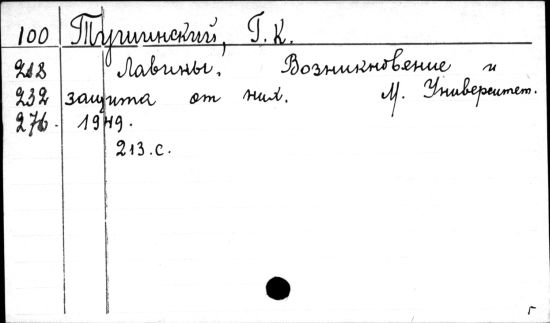 100 Тушинский, Г.К.
218 Лавины. Возникновение и
232 защита от них. М. Университет.
276. 1949.
213.с.
г